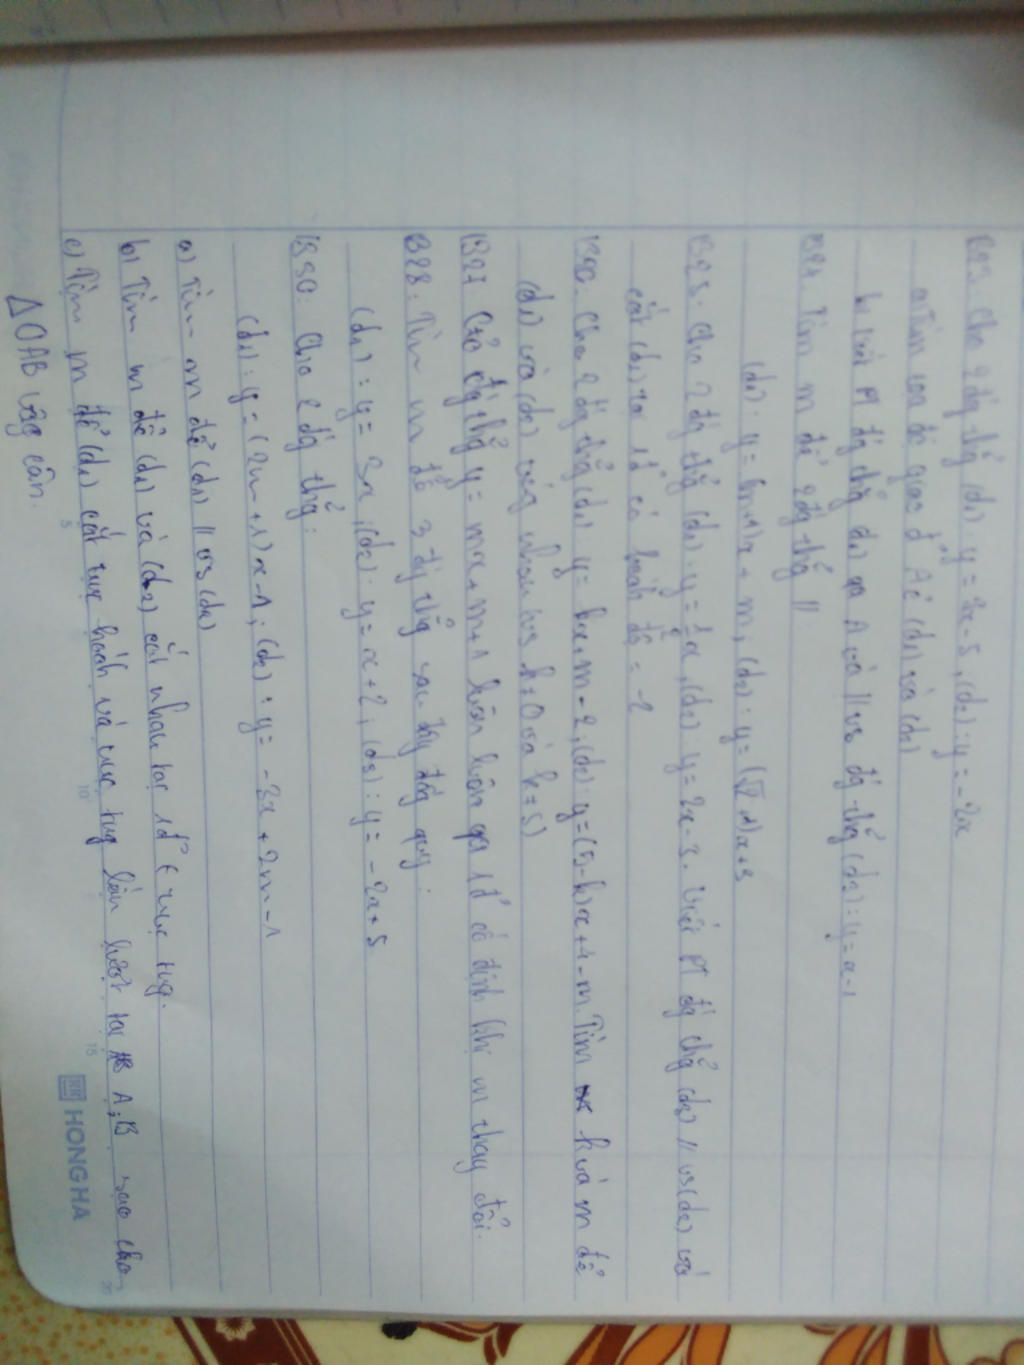 B23. Cho 2 đg thẳg (d1): y = 2x - 5, (d2): y = -2x
a. Tìm tọa độ giao đ' A of (d1) và (d2)
b. Viết PT đg thẳg d3 qa A và // vs đg thẳg (d2): y = x - 1
B24. Tìm m để 2 đg thẳg //
(d1): y = (m+1)x + m, (d2): y = (√2 +1)x + 3
B25. Cho 2 đg thẳg (d1): y = x, (d2) y = 2x - 3. Viết PT đg thẳg (d3) // vs (d2) và
cắt (d1) tại 1đ' có hoành độ = -2
Cho 2 đg thẳg (d1) y = kx + m - 2, (d2): y = (5-k)x + 4 - m. Tìm k và m để
(d1) và (d2) trùng nhau
B27. đg thẳg y = mx + m + 1 luôn luôn qa 1đ' cố định khi m thay đổi.
B28. Tìm m để 3 đg thẳg sau đây đồng quy:
(d1): y = 3x, (d2): y = x + 2, (d3): y = -2x + 5
B30: Cho 2 đg thẳg:
(d1): y = (2m+1)x - 1; (d2): y = -3x + 2m - 1
a) Tìm m để (d1) // vs (d2)
b) Tìm m để (d1) và (d2) cắt nhau tại 1đ' ∈ trục tug.
c) Tìm m để (d1) cắt trục hoành và trục tug lần lượt tại A, B sao cho
Δ OAB vg cân.
5 10 15 20
HONG HA